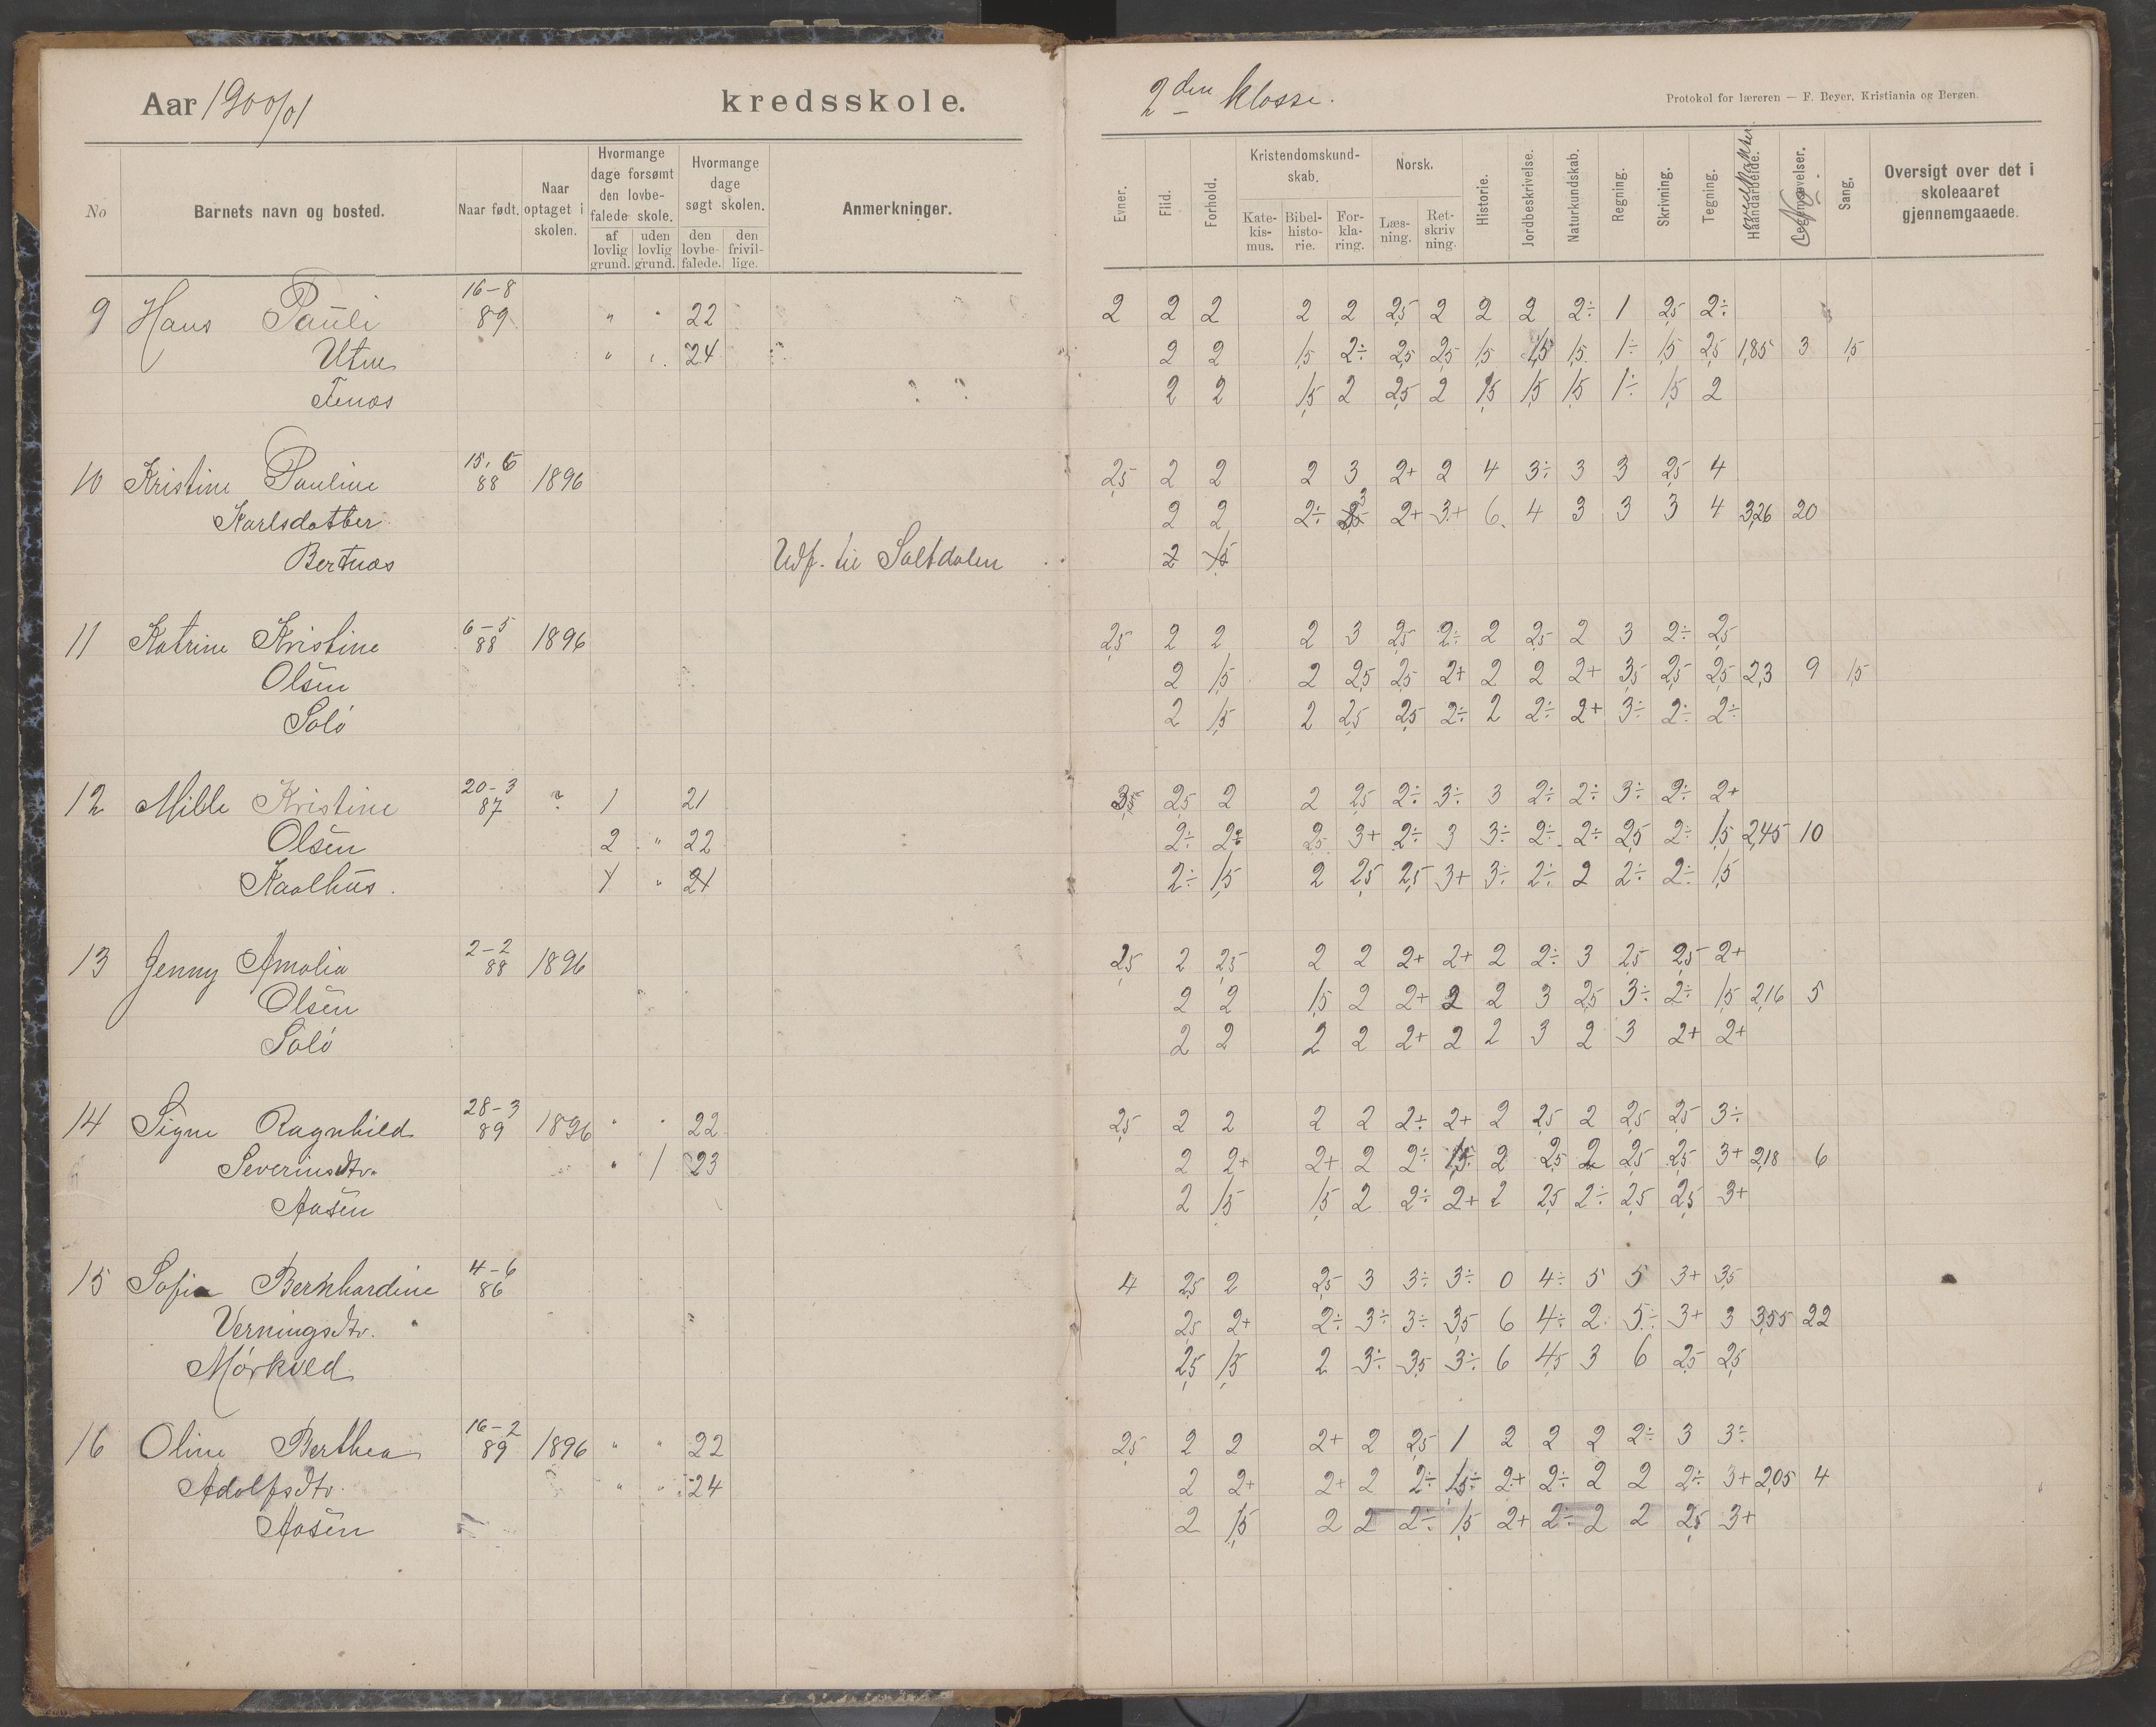 Aar 1900/01 kredsskole. 2den klasse.
Protokol for læreren — F. Beyer, Kristiania og Bergen.
No Barnets navn og bosted. Naar født. Naar optaget i skolen. Hvormange dage forsømt den lovbefalede skole. af lovlig grund. uden lovlig grund. Hvormange dage søgt skolen. den lovbefalede. den frivillige. Anmerkninger. Evner. Flid. Forhold. Kristendomskundskab. Katekismus. Bibelhistorie. Forklaring. Norsk. Læsning. Retskrivning. Historie. Jordbeskrivelse. Naturkundskab. Regning. Skrivning. Tegning. Haandarbeide. Legemsøvelser. No. Sang. Oversigt over det i skoleaaret gjennemgaaede.
9 Hans Pauli 16-8 89 " " 22 2 2 2 2 2 2,5 2 2 2 2÷ 1 2,5 2÷
Utne " " 24 2 2 1,5 2÷ 2,5 2,5 1,5 1,5 1,5 1÷ 1,5 2,5 1,85 3 1,5
Tenæs 2 2 1,5 2 2,5 2 1,5 1,5 1,5 1÷ 1,5 2
10 Kristine Pauline 15,6 88 1896 2,5 2 2 2 3 2+ 2 4 3÷ 3 3 2,5 4
Karlsdatter 2 2 2÷ 3 2+ 3+ 6 4 3 3 3 4 3,26 20
Bertnæs Udf. til Saltdalen 2 1,5
11 Katrine Kristine 6-5 88 1896 2,5 2 2 2 3 2,5 2÷ 2 2,5 2 3 2÷ 2,5
Olsen 2 1,5 2 2,5 2,5 2+ 2 2 2+ 3,5 2,5 2,5 2,3 9 1,5
Solö 2 1,5 2 2,5 2,5 2÷ 2 2÷ 2+ 3÷ 2÷ 2÷
12 Mille Kristine 20-3 87 ? 1 21 3,5 2,5 2 2 2,5 2÷ 3÷ 3 2÷ 2÷ 3÷ 2÷ 2+
Olsen 2 " 22 2÷ 2÷ 2,5 3+ 2÷ 3 3÷ 2÷ 2÷ 2,5 2÷ 1,5 2,45 10
Kaalhus. 1 " 21 2÷ 1,5 2 2,5 2,5 3+ 3÷ 2÷ 2 2÷ 2÷ 1,5
13 Jenny Amalia 2-2 88 1896 2,5 2 2,5 2 2 2+ 2+ 2 2÷ 3 2,5 2,5 2+
Olsen 2 2 1,5 2 2+ 2 2 3 2,5 3÷ 2÷ 1,5 2,16 5
Solö 2 2 2 2 2+ 2 2 3 2 3 2+ 2+
14 Signe Ragnhild 28-3 89 1896 " " 22 2,5 2 2 2 2 2÷ 2+ 2 2,5 2 2,5 2,5 3÷
Severinsdtr. " 1 23 2 2+ 2+ 2 2÷ 1,5 2 2,5 2 2,5 2,5 3+ 2,18 6
Aasen 2 1,5 1,5 2 2÷ 2+ 2 2,5 2÷ 2,5 2,5 3+
15 Sofia Bernhardine 4-6 86 4 2,5 2 2,5 3 3÷ 3÷ 0 4÷ 5 5 3+ 3,5
Verningsdtr. 2,5 2+ 2÷ 3÷ 3÷ 3,5 6 4÷ 2 5÷ 3+ 3 3,55 22
Mörkved 2,5 1,5 2 3÷ 3,5 3÷ 6 4,5 3 6 2,5 2,5
16 Oline Berthea 16-2 89 1896 " " 22 2,5 2 2 2+ 2 2,5 1 2 2 2 2÷ 3 3÷
Adolfsdtr. " " 24 2 2+ 2+ 2 2÷ 1,5÷ 2+ 2÷ 2 2 2÷ 3+ 2,05 4
Aasen 2 1,5 2 2 2÷ 1,5 2+ 2÷ 2 2 2,5 3+